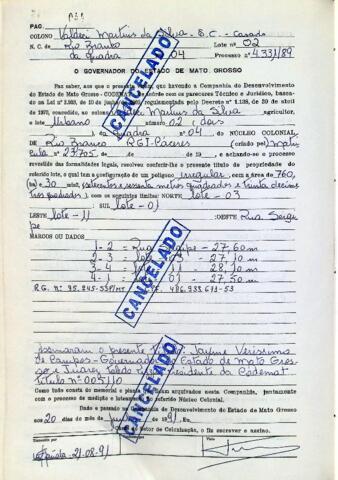 PAG.
COLONO Valdeir Martins da Silva - B.C. - Casado
N. C. de Rio Branco Lote nº 02
da Quadra 04 Processo 4.331/89
O GOVERNADOR DO ESTADO DE MATO GROSSO
Faz saber, aos que o presente que havendo a Companhia de Desenvolvimento
do Estado de Mato Grosso - CODEMAT de acordo com os pareceres Técnico e Jurídico, basea-
da Lei nº de 10 de regulamentada pelo Decreto nº 1.138, de 20 de abril
de 1970, concedido ao colono Valdeir Martins da Silva agricultor,
o lote Urbano número 02 (dois)
da Quadra nº 04 do NÚCLEO COLONIAL
DE Rio Branco RGI-Cáceres (criado pela Matrí
cula nº 23.705 de de de 19 e achando-se o processo
revestido das formalidades legais, resolveu conferir-lhe o presente título de propriedade do
referido lote, o qual tem a configuração de um polígono irregular, com a área de 760,
30 m², (setecentos e sessenta metros quadrados e trinta decíme
tros quadrados) com os seguintes limites: NORTE lote - 03
SUL lote - 01
LESTE lote - 11 OESTE Rua Sergi
pe
MARCOS OU DADOS
1 - 2 = Rua Sergipe - 27,60 m
2 - 3 = lote 03 - 27,10 m
3 - 4 = lote 11 - 28,10 m
4 - 1 = lote 01 - 27,50 m
CANCELADO
CANCELADO
CANCELADO
CANCELADO
Assinaram o presente Jayme Veríssimo
de Campos - Governador do Estado de Mato Gros
so e Juarez Toledo Presidente da Codemat
título nº 005110
Como tudo consta do memorial e planta que ficam arquivados nesta Companhia, juntamente
com o processo de medição e loteamento do referido Núcleo Colonial.
Dado e passado na Companhia de Desenvolvimento do Estado de Mato Grosso
aos 20 dias do mês de
do Setor de Colonização, o fiz escrever e assino.
Visto
21.08.91